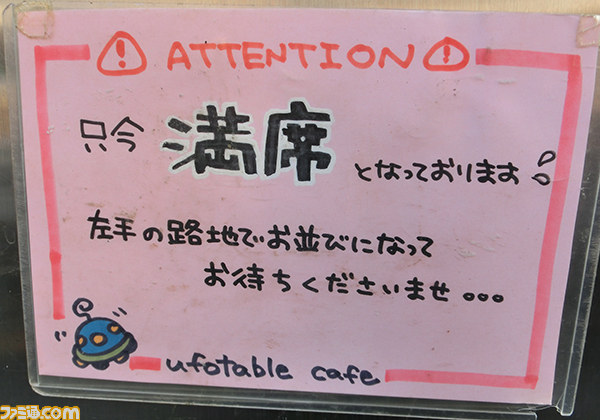 ATTENTION
只今 満席 となっております
左手の路地でお並びになって
お待ちくださいませ。。。
ufotable cafe
ファミ通.com